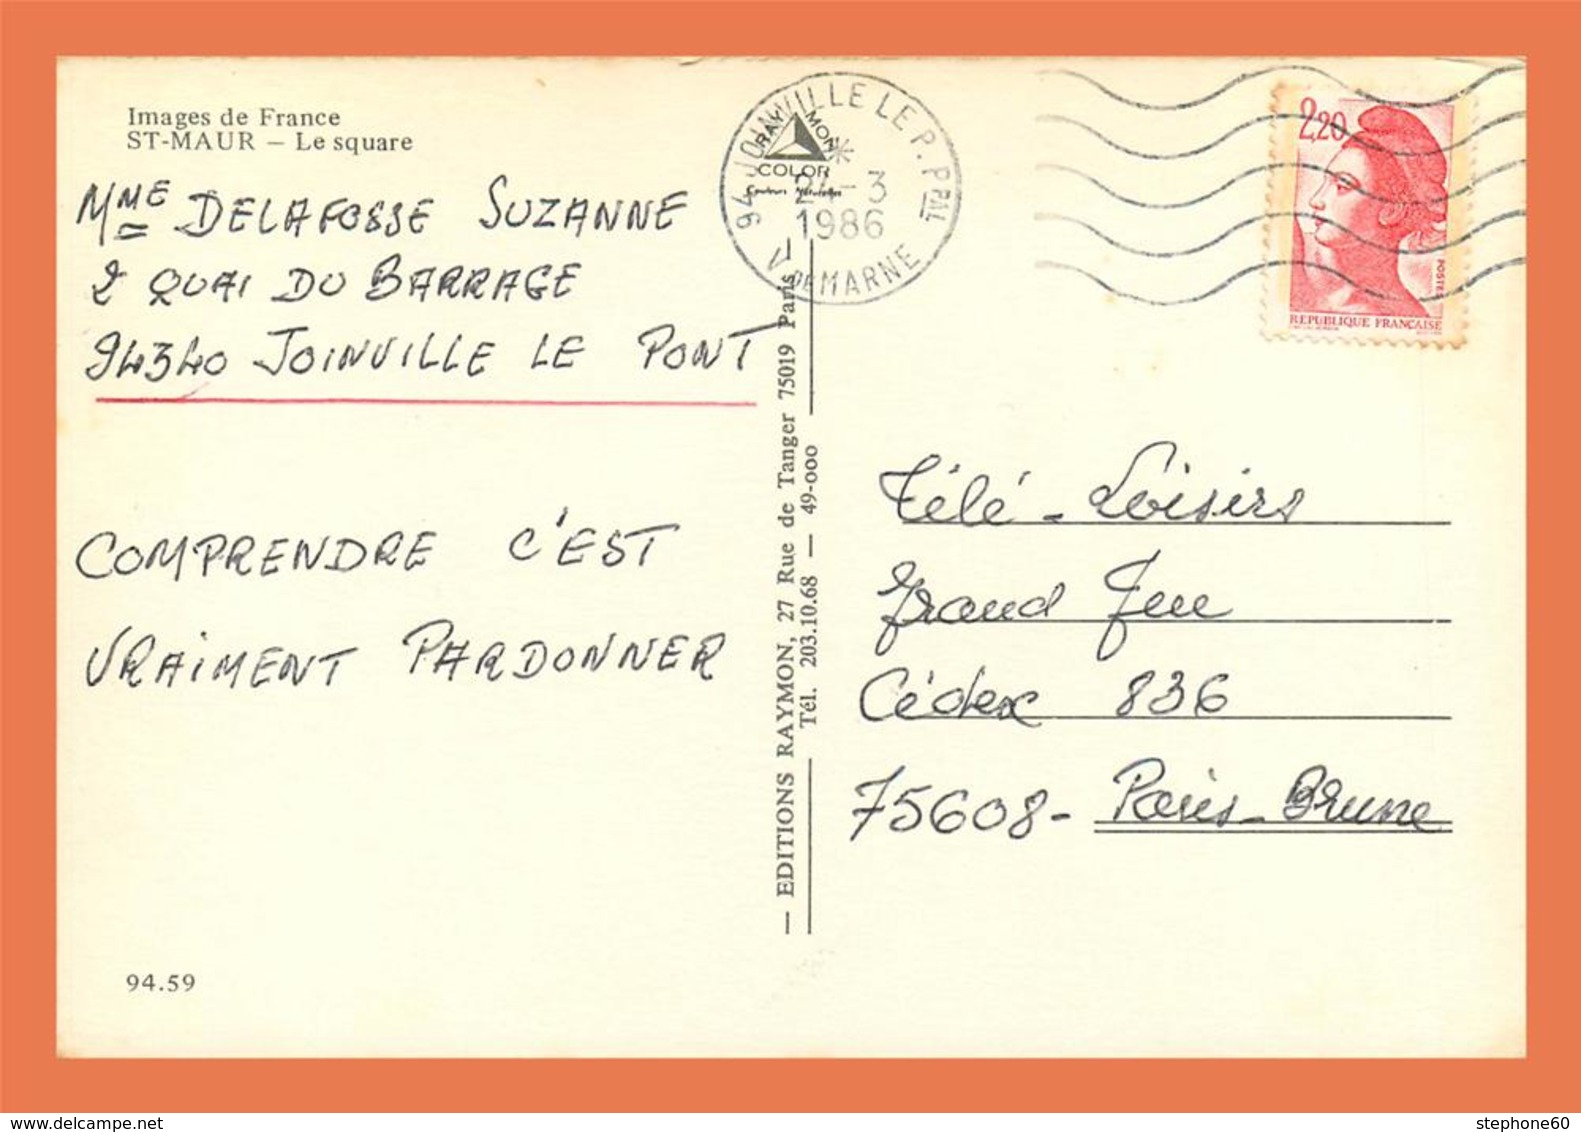 Images de France
ST-MAUR – Le square
MME DELAFOSSE SUZANNE
2 QUAI DU BARRAGE
94340 JOINVILLE LE PONT
COMPRENDRE C'EST
VRAIMENT PARDONNER
94.59
RAYMON
COLOR
Couleurs Naturelles
94 JOINVILLE LE P. PPAL
24-3
1986
V. DE MARNE
— EDITIONS RAYMON, 27 Rue de Tanger 75019 Paris
Tél. 203.10.68 — 49-000
2,20
POSTES
REPUBLIQUE FRANÇAISE
Télé-Loisirs
Grand Jeu
Cédex 836
75608- Paris-Brune
delcampe.net
stephone60